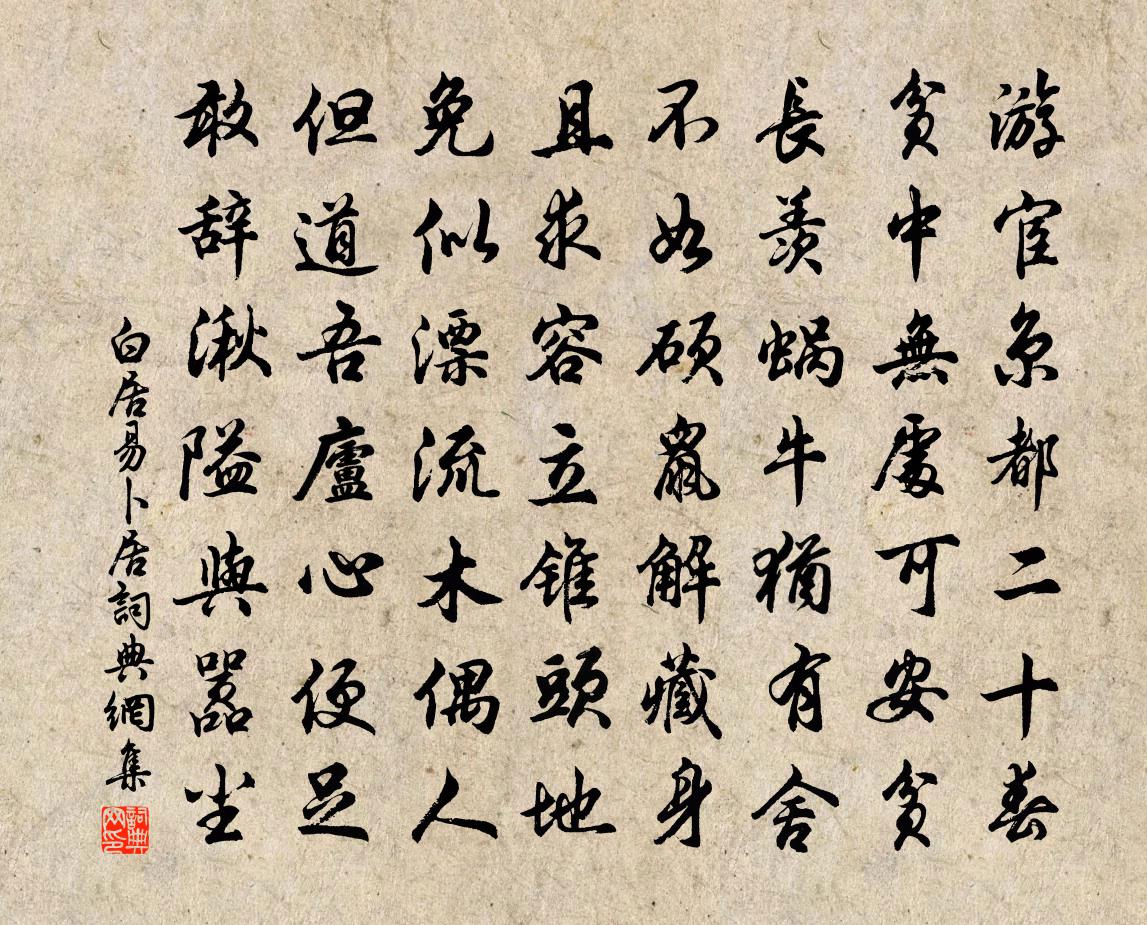 游宦京都二十春
貧中無處可安貧
長羨蝸牛猶有舍
不如碩鼠解藏身
且求容立錐頭地
免似漂流木偶人
但道吾廬心便足
敢辞湫隘與囂尘
白居易卜居詞典網集
詞典網印